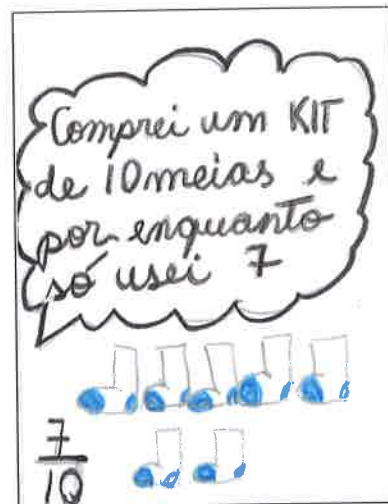 Comprei um KIT
de 10 meias e
por enquanto
só usei 7
7
10